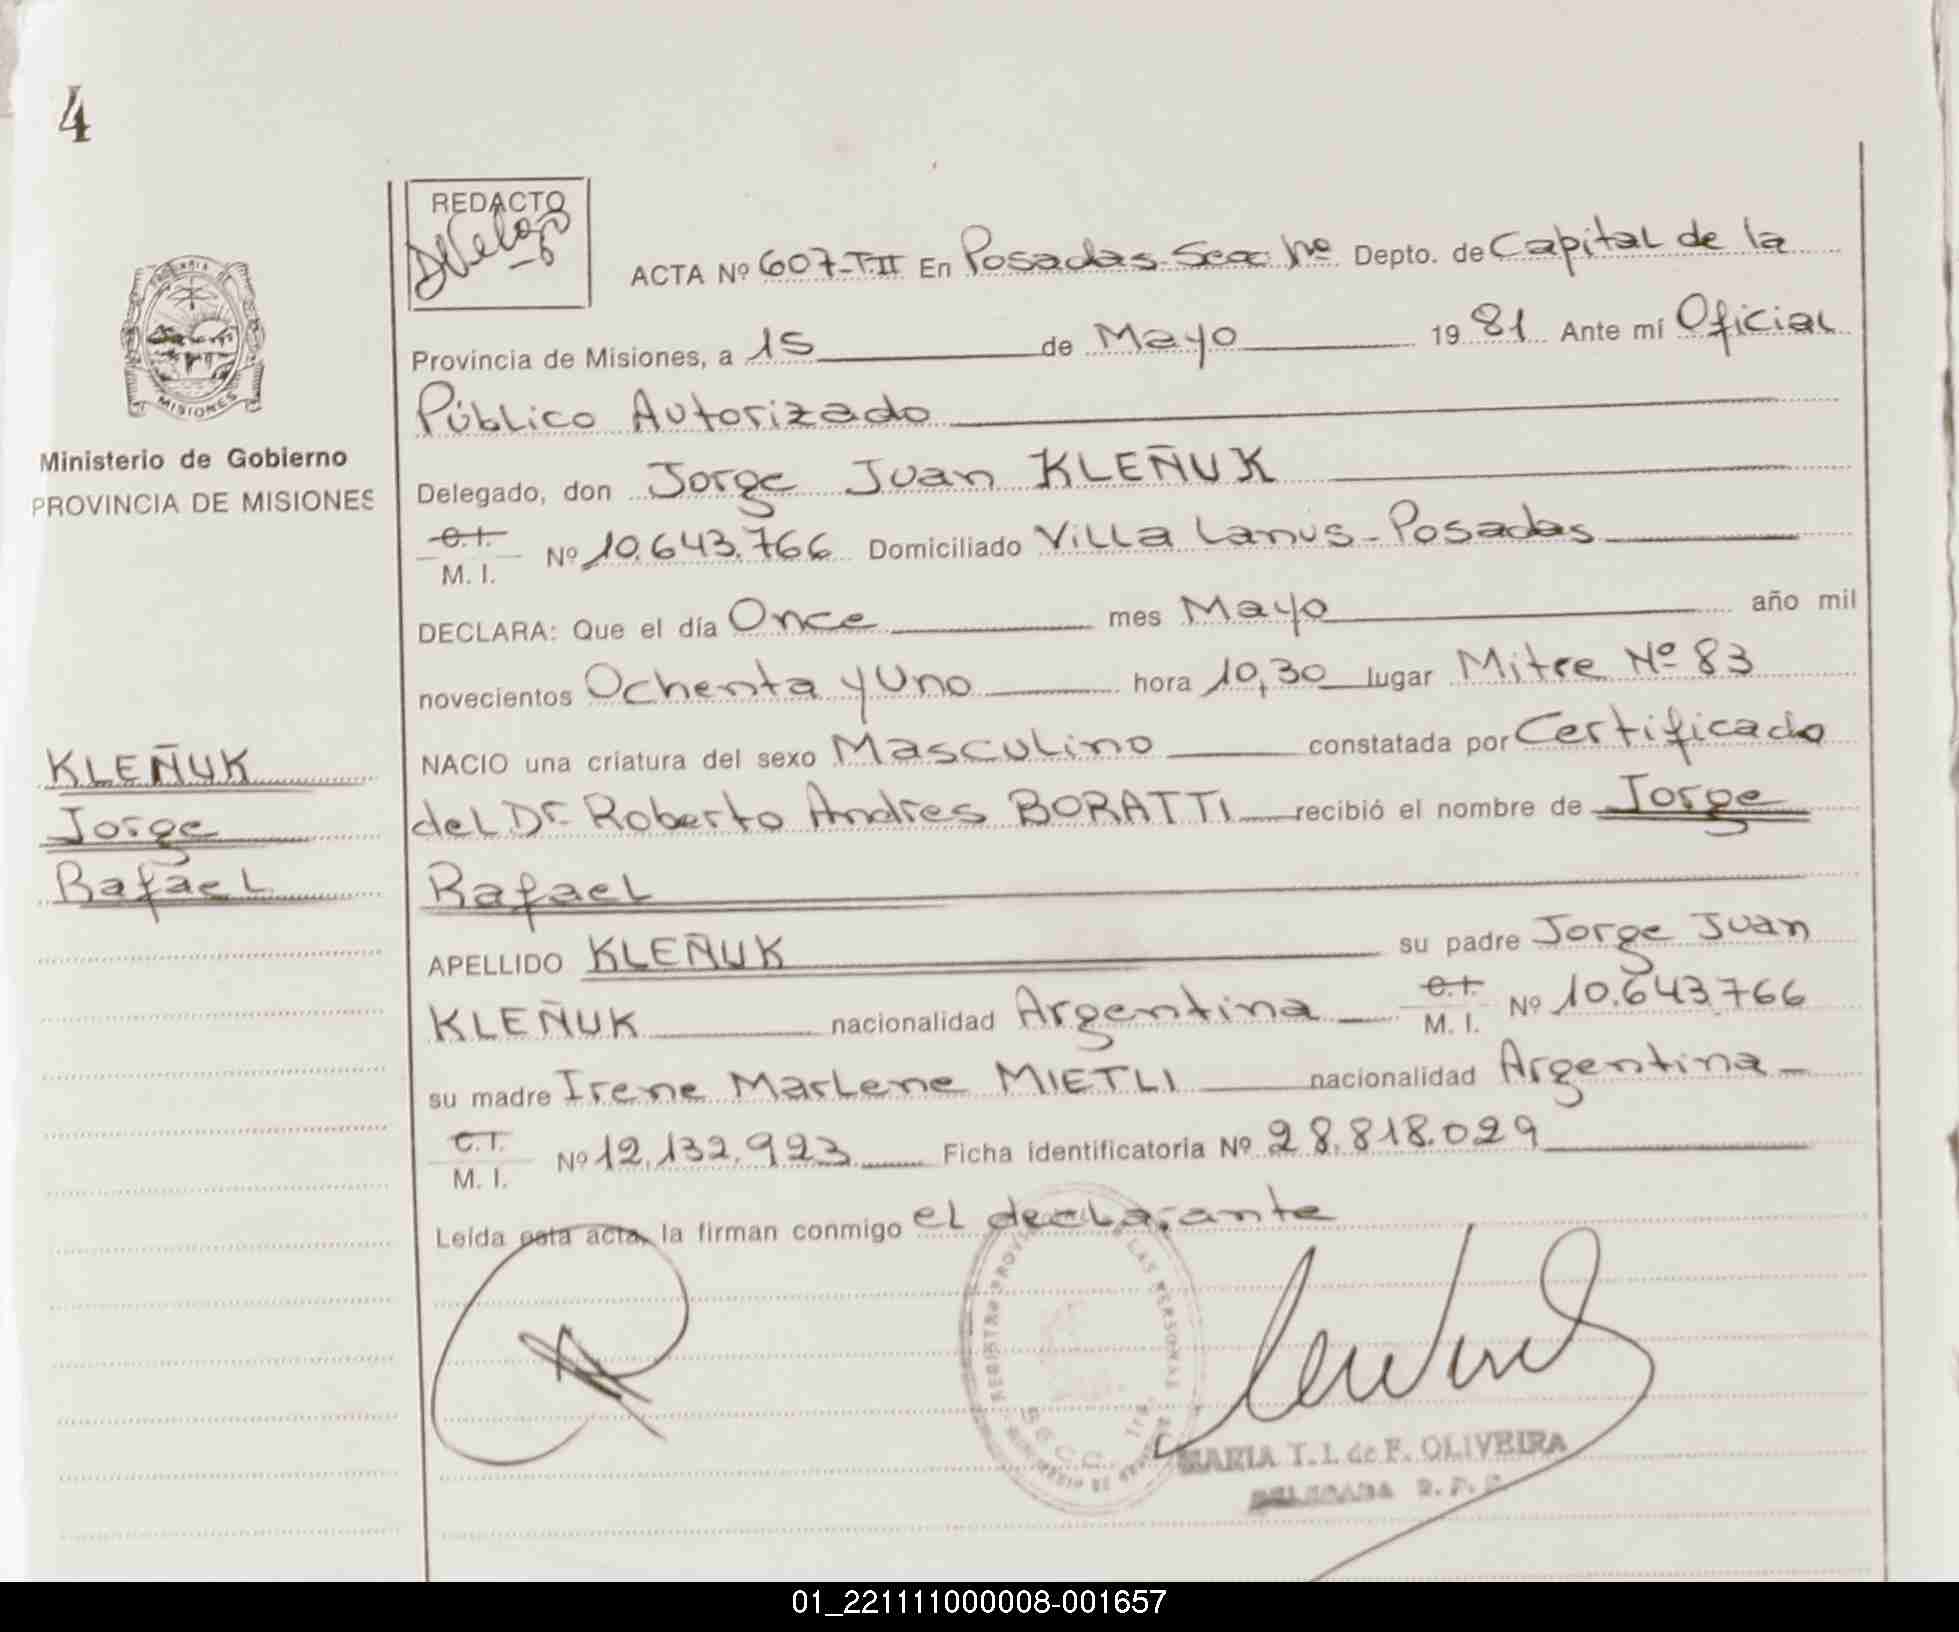 4
REDACTO
ACTA Nº 607-T.II En Posadas-Secc 1ra Depto. de Capital de la
Provincia de Misiones, a 15 de Mayo 1981 Ante mí Oficial
Público Autorizado
Delegado, don Jorge Juan KLEÑUK
C.I.
M. I. Nº 10.643.766 Domiciliado Villa Lanus-Posadas
DECLARA: Que el día Once mes Mayo año mil
novecientos Ochenta y Uno hora 10,30 lugar Mitre Nº 83
NACIO una criatura del sexo Masculino constatada por Certificado
del Dr. Roberto Andres BORATTI recibió el nombre de Jorge
Rafael
APELLIDO KLEÑUK su padre Jorge Juan
KLEÑUK nacionalidad Argentina C.I.
M. I. Nº 10.643.766
su madre Irene Marlene MIETLI nacionalidad Argentina
C.I.
M. I. Nº 12.132.923 Ficha identificatoria Nº 28.818.029
Leída esta acta, la firman conmigo el declarante
MISIONES
Ministerio de Gobierno
PROVINCIA DE MISIONES
KLEÑUK
Jorge
Rafael
REGISTRO PROV LAS PERSONAS
SECC. 1ra.
MARIA T. I. de F. OLIVEIRA
DELEGADA R. P. P.
01_221111000008-001657